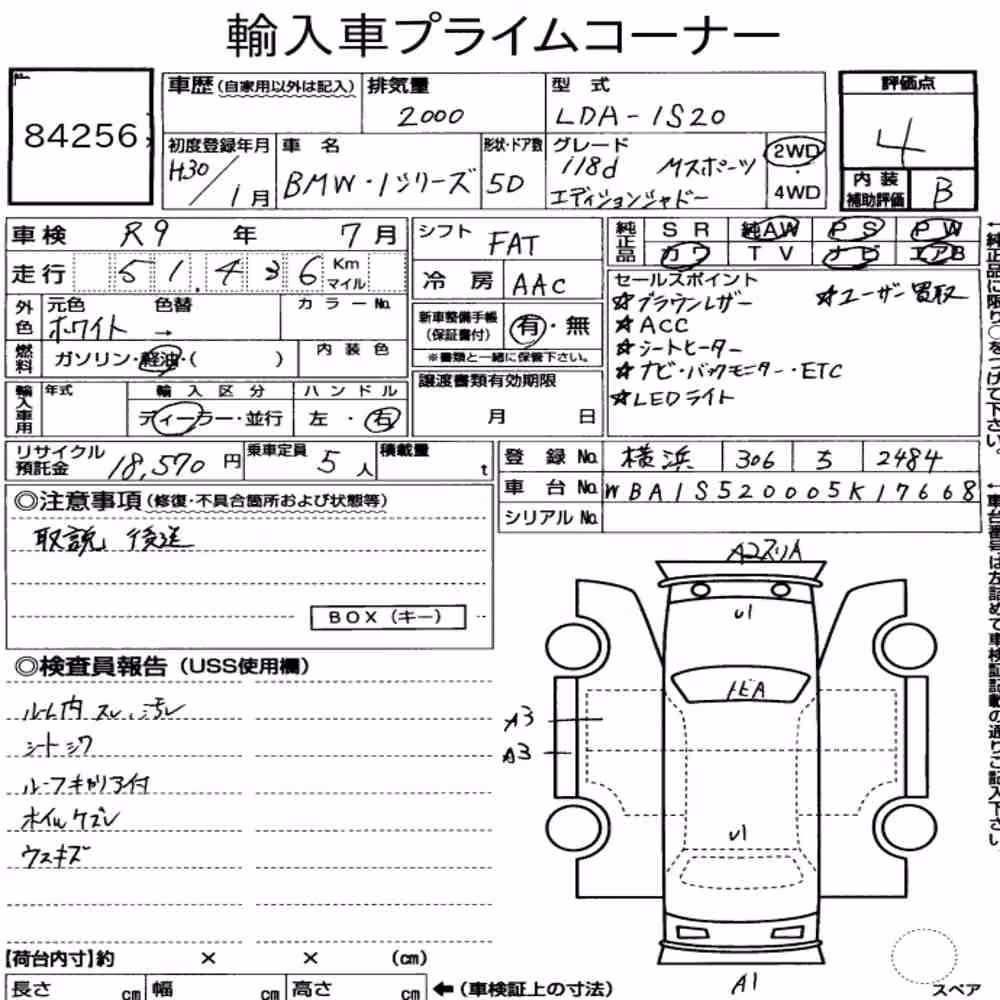 輸入車プライムコーナー
84256
車歴 (自家用以外は記入) 排気量 2000 型式 LDA-1S20
評価点 4
初度登録年月 H30/1月 車名 BMW・1シリーズ 形状・ドア数 5D グレード 118d Mスポーツ エディションシャドー 2WD・4WD
内装補助評価 B
車検 R9年 7月
走行 51,436 Km マイル
外色 元色 ホワイト 色替 → カラーNo.
燃料 ガソリン・軽油・( ) 内装色
輸入車用 年式 輸入区分 ディーラー・並行 ハンドル 左・右
シフト FAT
冷房 AAC
新車整備手帳 (保証書付) 有・無
※書類と一緒に保管下さい。
譲渡書類有効期限 月 日
純正品 SR 純AW PS PW
カワ TV ナビ エアB
セールスポイント
☆ブラウンレザー ☆ユーザー買取
☆ACC
☆シートヒーター
☆ナビ・バックモニター・ETC
☆LEDライト
←純正品に限り○をつけて下さい。
リサイクル預託金 18,570円 乗車定員 5人 積載量 t
登録No. 横浜 306 ろ 2484
車台No. WBA1S520005K17668
シリアルNo.
←車台番号は左詰めで車検証記載の通りご記入下さい。
◎注意事項 (修復・不具合箇所および状態等)
取説 後送
BOX (キー)
◎検査員報告 (USS使用欄)
ルーム内 スレ、汚レ
シートシワ
ルーフキャリア付
ホイルケズレ
ウスキズ
A2スリA
U1
トビA
A3
A3
U1
A1
スペア
【荷台内寸】約 × × (cm)
長さ cm 幅 cm 高さ cm ←(車検証上の寸法)